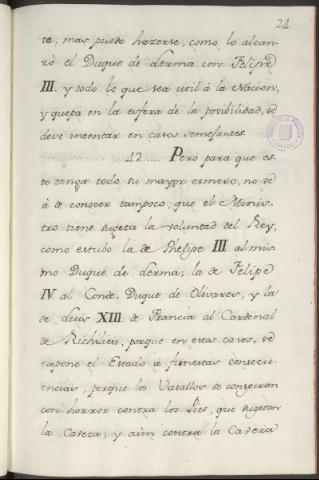 24
te; mas puede hazerse, como lo alcan-
zò el Duque de Lerma con Felipe
III. y todo lo que sea util à la Nacion,
y quepa en la esfera de la posibilidad, se
deve intentar en casos semejantes.
42..... Pero para que es-
to tenga todo su mayor esmero, no se
à de conocer tampoco, que el Minis-
tro tiene sugeta la voluntad del Rey,
como estubo la de Phelipe III al mis-
mo Duque de Lerma; la de Felipe
IV. al Conde-Duque de Olivares, y la
de Luis XIII. de Francia al Cardenal
de Richilieu; porque en estos casos, se
expone el Estado à funestas consecu-
encias, porque los Vasallos se conspiran
con horror contra los Pies, que sugetan
la Cavera, y aùn contra la Cavera